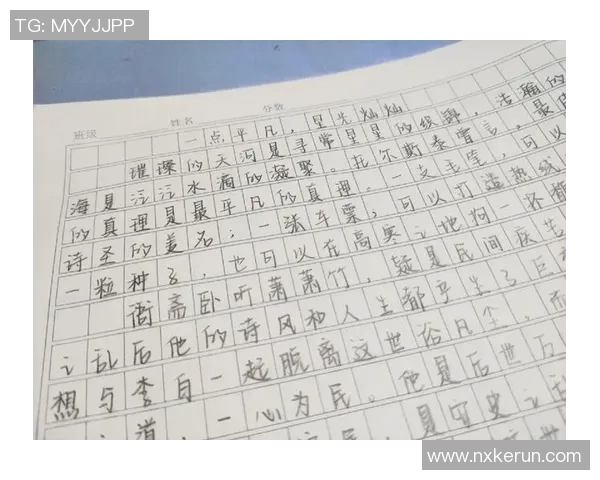 TG: MYYJJPP
班级 姓名 分数
一点平凡，星光灿灿
璀璨的天河是寻常星星的织锦，浩瀚的
海是汪汪水滴的凝聚。托尔斯泰曾言，最
的真理是最平凡的真理。一支毛笔，可以
诗圣的美名；一张车票，可以打造热线
一粒种子，也可以在高寒之地掏一杯
衙斋卧听萧萧竹，疑是民间疾苦
之乱后他的诗风和人生都乎生了巨
想与李白一起脱离这世俗凡尘，而
之道，一心为民。他是后世万
是守史之
www.nxkerun.com